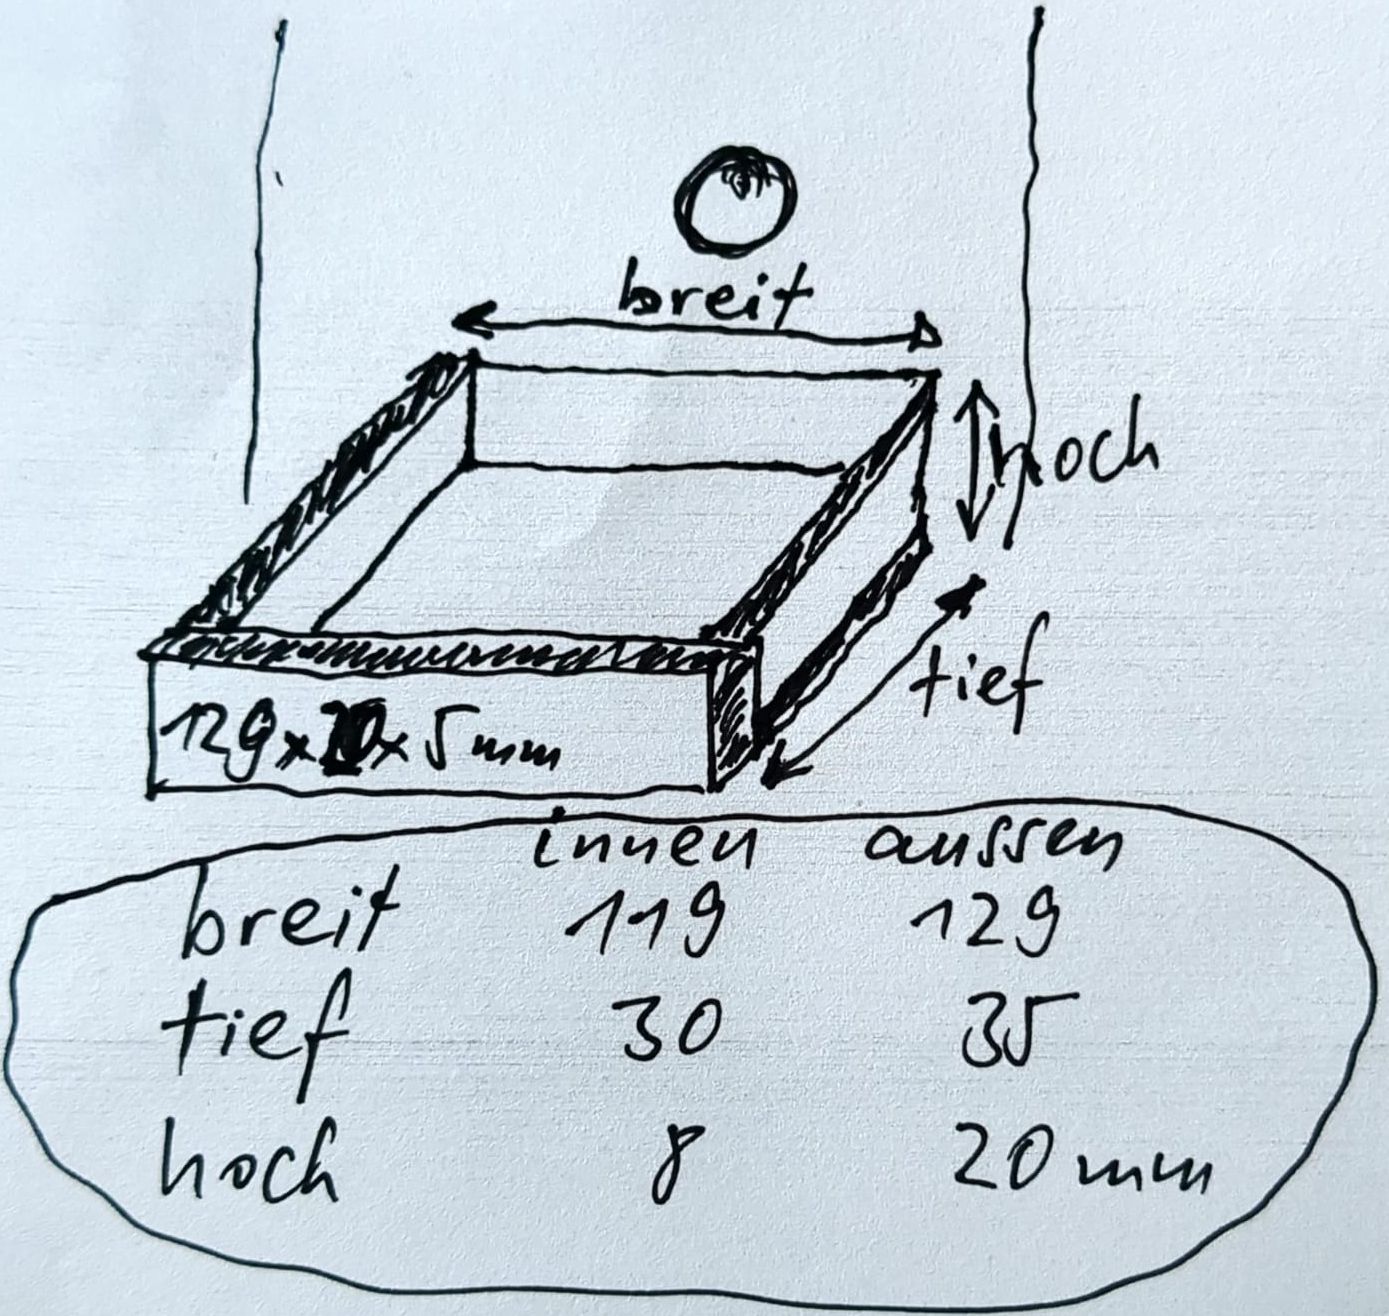 breit
hoch
tief
129x20x5mm
innen aussen
breit 119 129
tief 30 35
hoch 8 20mm